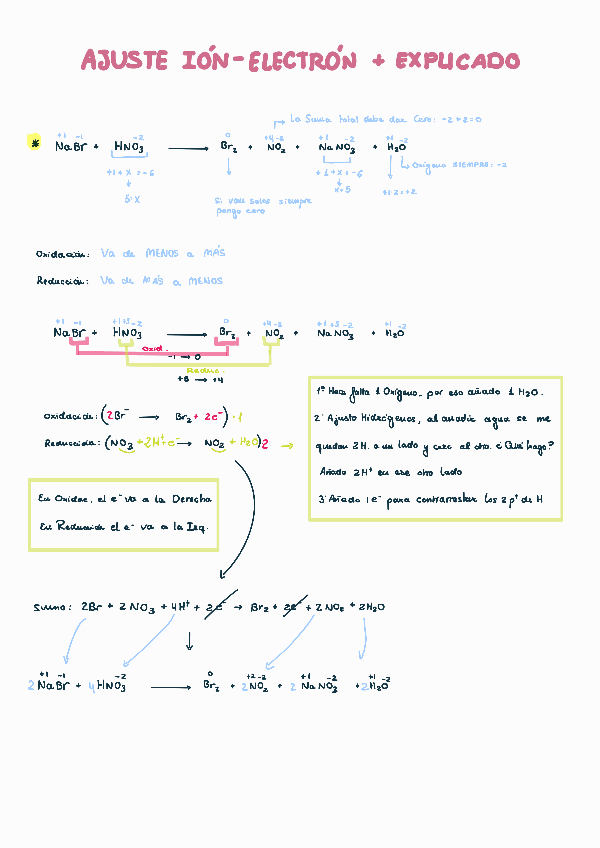 AJUSTE IÓN-ELECTRÓN + EXPLICADO
La Suma total debe dar Cero: -2+2=0
+1 -1 -2 0 +4-2 +1 -2 +1 -2
* NaBr + HNO3 → Br2 + NO2 + NaNO3 + H2O
Oxígeno SIEMPRE: -2
+1+X=-6 +1+X=-6
5:X X=5 +1·2=+2
Si van solos siempre
pongo cero
Oxidación: Va de MENOS a MÁS
Reducción: Va de MÁS a MENOS
+1 -1 +1+5-2 0 +4-2 +1+5-2 +1 -2
NaBr + HNO3 → Br2 + NO2 + NaNO3 + H2O
Oxid.
-1 → 0
Reduc.
+5 → +4
Oxidación: (2Br⁻ → Br2 + 2e⁻)·1
Reducción: (NO3 + 2H⁺+e⁻ → NO2 + H2O)2 →
1º Hace falta 1 Oxígeno, por eso añado 1 H2O.
2º Ajusto Hidrógenos, al añadir agua se me
quedan 2H a un lado y cero al otro. ¿Qué hago?
Añado 2H⁺ en ese otro lado
3º Añado 1e⁻ para contrarrestar los 2p⁺ de H
En Oxidac, el e⁻ va a la Derecha
En Reducción el e⁻ va a la Izq.
Suma: 2Br + 2NO3 + 4H⁺ + 2e⁻ → Br2 + 2e⁻ + 2NO2 + 2H2O
+1 -1 -2 0 +2-2 +1 -2 +1 -2
2NaBr + 4HNO3 → Br2 + 2NO2 + 2NaNO3 + 2H2O